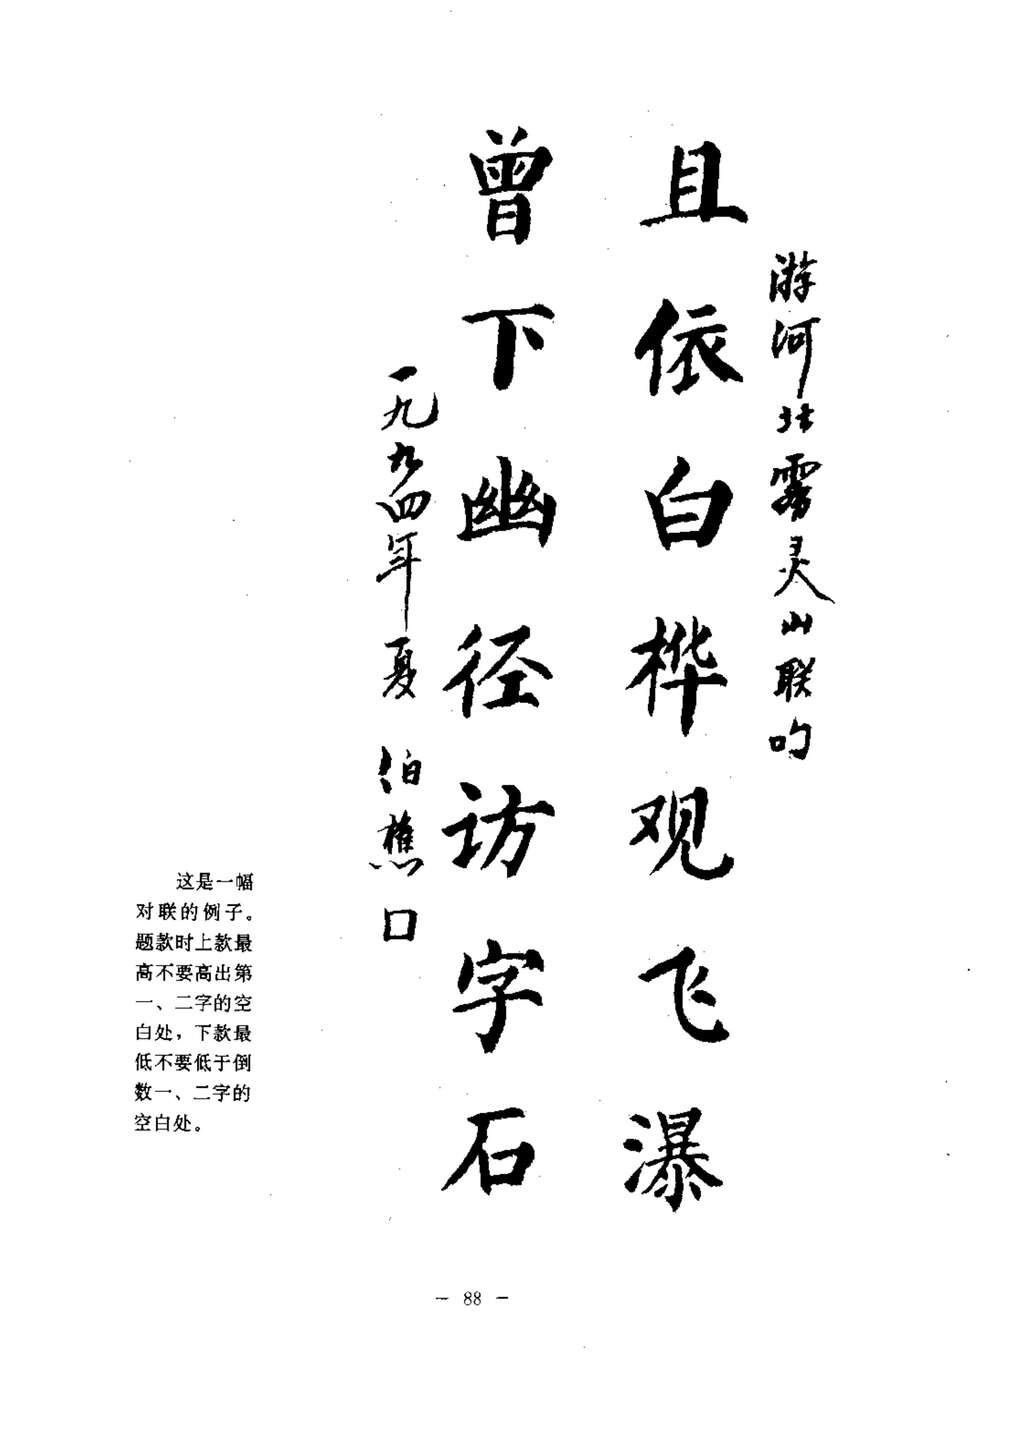 游河北雾灵山联句
且依白桦观飞瀑
曾下幽径访字石
一九九四年夏 伯樵
这是一幅
对联的例子。
题款时上款最
高不要高出第
一、二字的空
白处，下款最
低不要低于倒
数一、二字的
空白处。
- 88 -